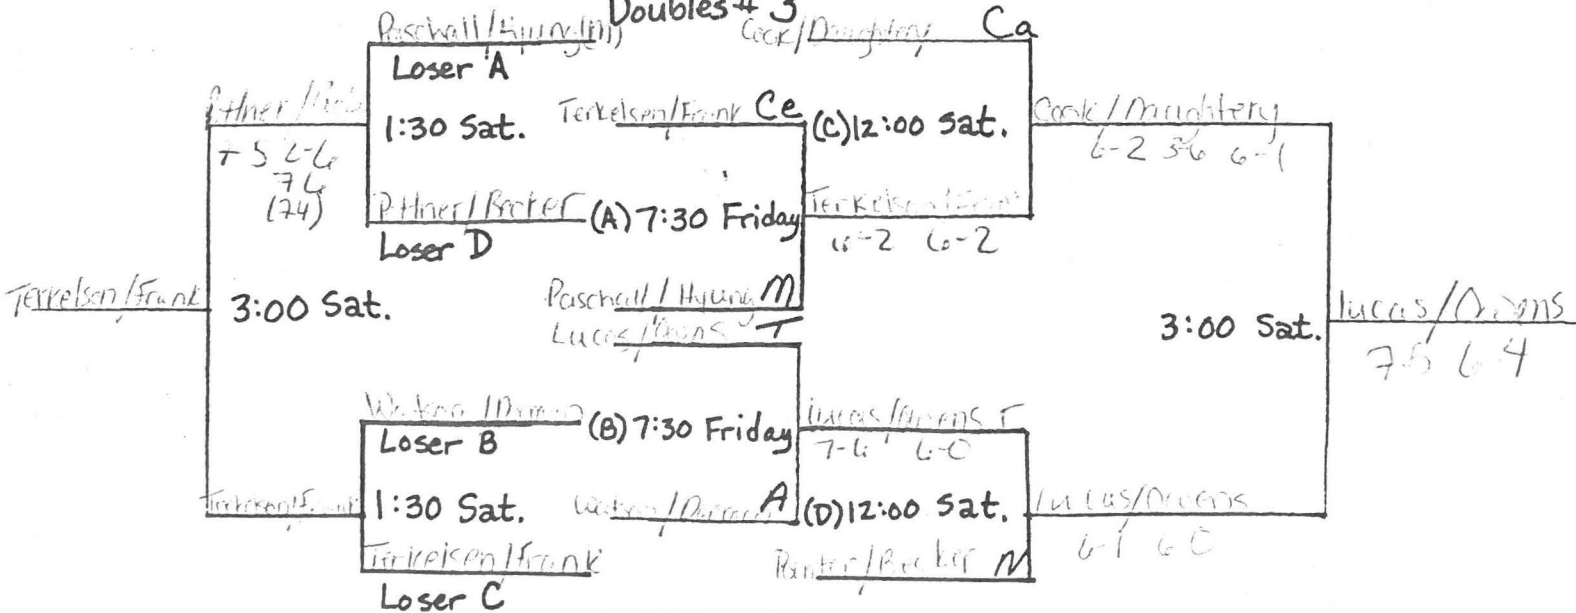 Doubles # 3
Paschall/Hyung(M)
Cook/Daughtery Ca
Loser A
Terkelsen/Frank Ce
1:30 Sat.
(C) 12:00 Sat.
Cook/Daughtery
6-2 3-6 6-1
7 5 2-6
7 6
(74)
(A) 7:30 Friday
Terkelsen/Frank
6-2 6-2
Loser D
Terkelsen/Frank
3:00 Sat.
Paschall/Hyung M
Lucas/Owens T
3:00 Sat.
Lucas/Owens
7-5 6 4
Loser B
(B) 7:30 Friday
Lucas/Owens T
7-6 6-0
Terkelsen/Frank
1:30 Sat.
A
(D) 12:00 Sat.
Lucas/Owens
6-1 6 0
Terkelsen/Frank
Becker N
Loser C